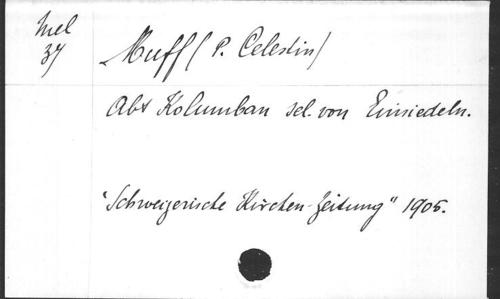 Mel
37
Muff (P. Celestin)
Abt Kolumban sel. von Einsiedeln.
"Schweizerische Kirchen-Zeitung" 1905.